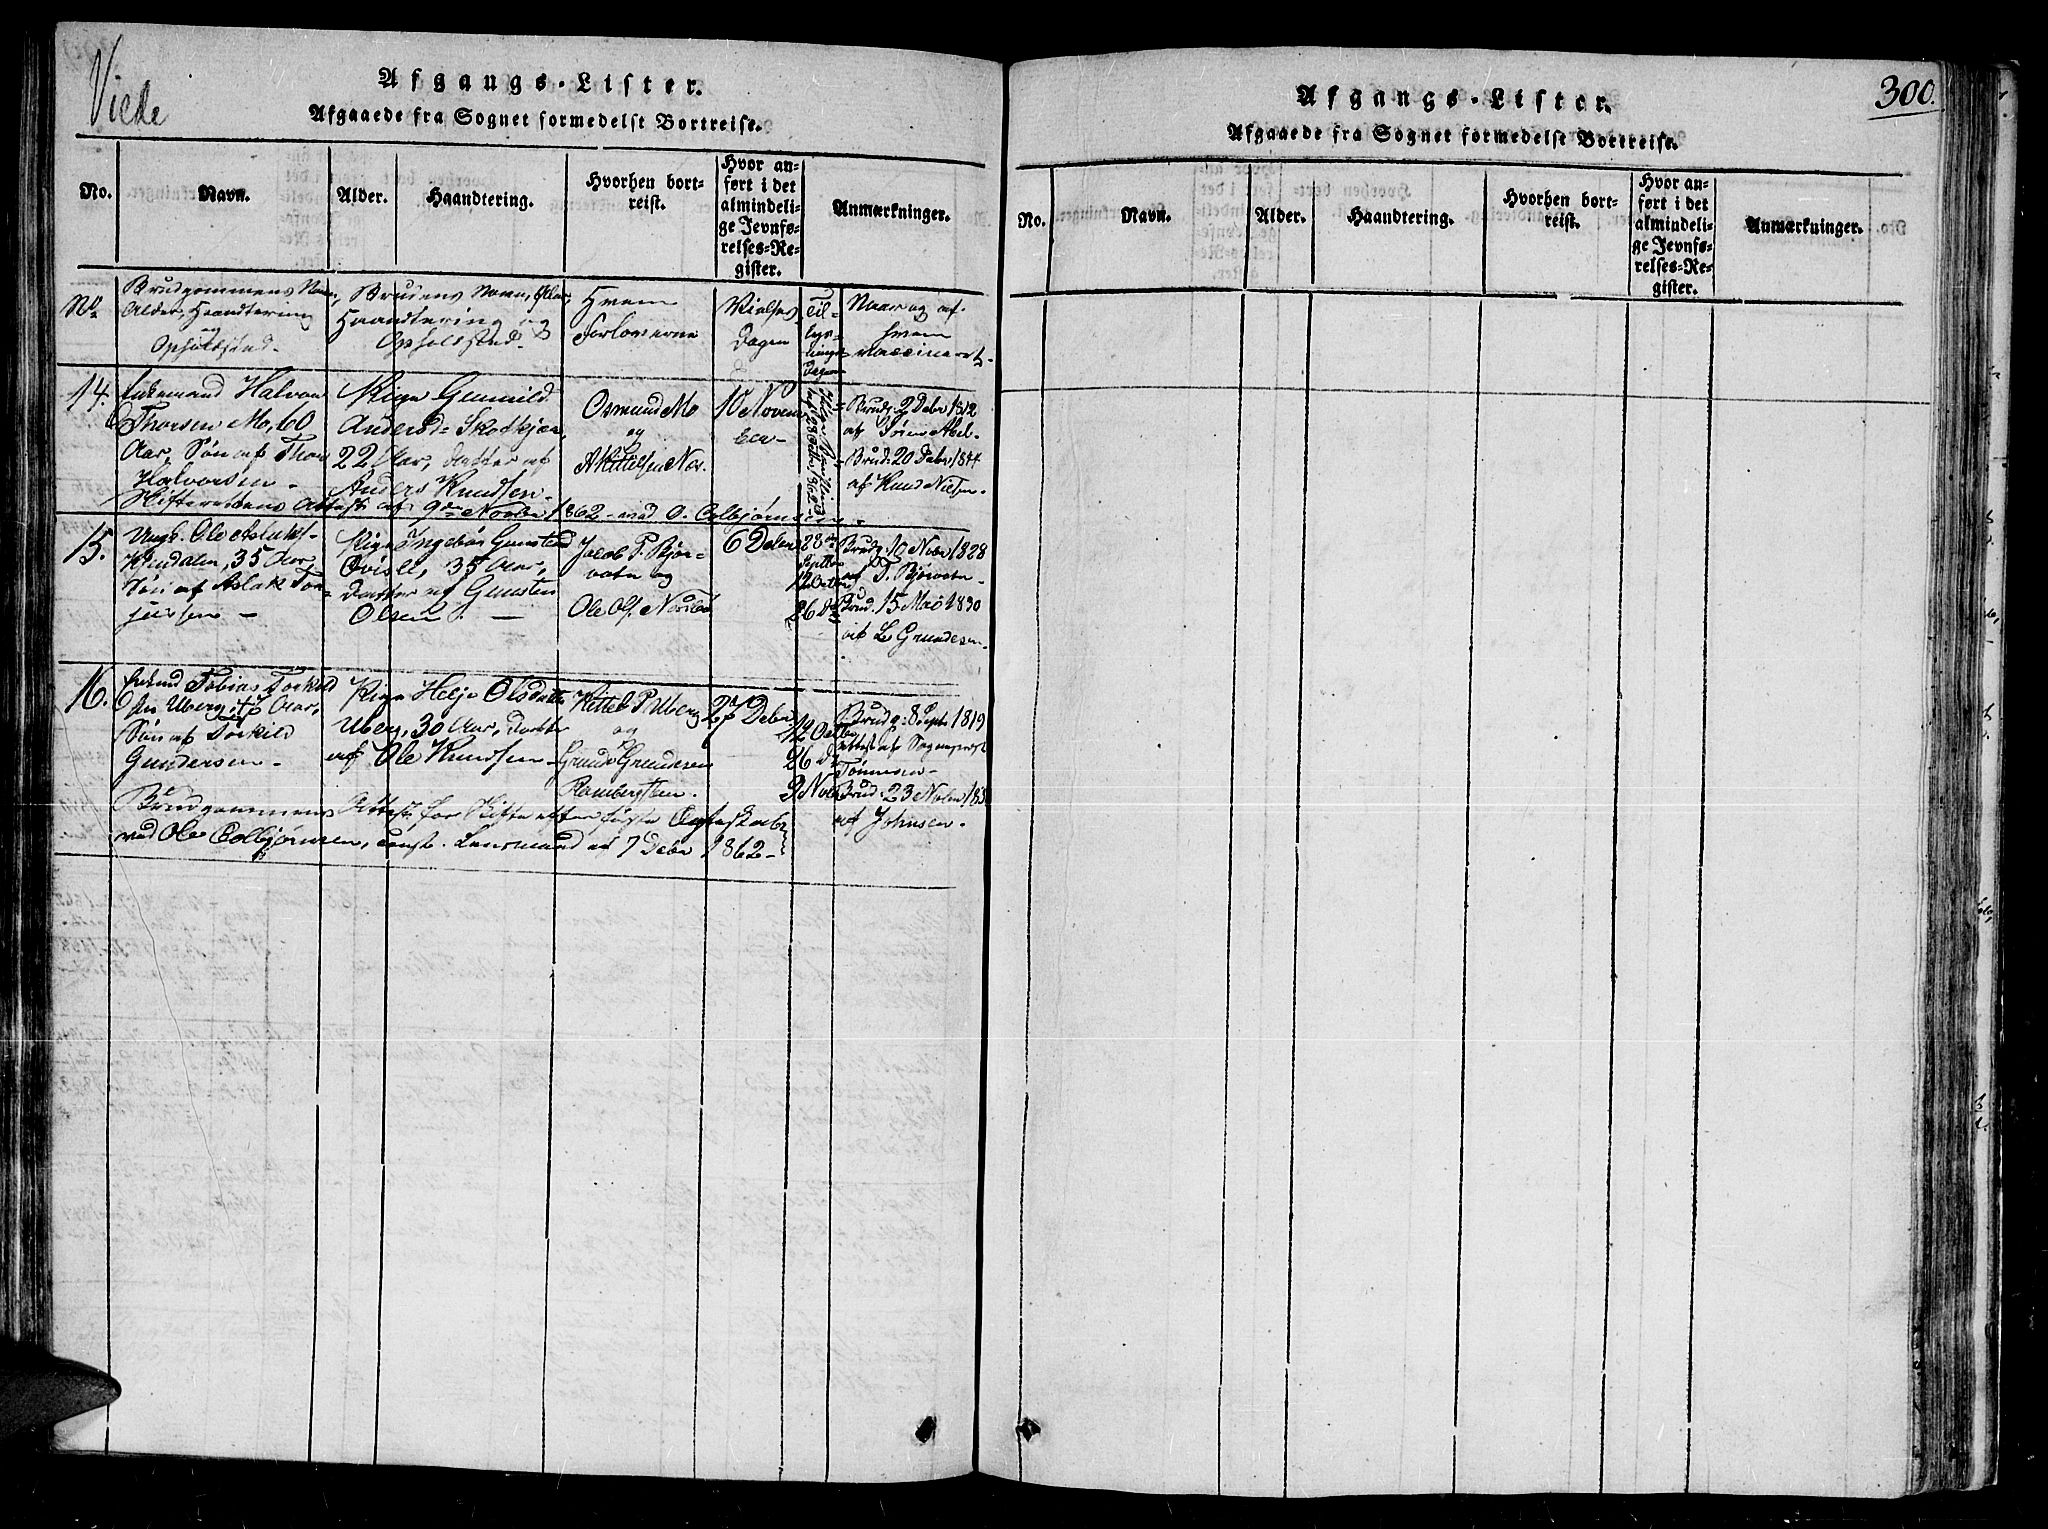 Viede
Afgangs-Lister.
Afgaaede fra Sognet formedelst Bortreise.
No.
Navn.
Alder.
Haandtering.
Hvorhen bort-
reist.
Hvor an-
ført i det
almindeli-
ge Jevnfø-
relses-Re-
gister.
Anmærkninger.
No.
Brudgommens Navn,
Alder, Haandtering
og
Opholdsted.
Brudens Navn, Alder,
Haandtering og
Opholdsted.
Hvem
Forloverne
Vielses
Dagen
Til-
lys-
nings-
Dagen
Naar og af
hvem
vaccineret.
14.
Enkemand Halvor
Thorsen Mo, 60
Aar, Søn af Thor
Halvorsen
Pige Gunnild
Andersd.
22 Aar, Datter af
Anders Knudsen
Osmund Mo
og
A Kittelsen
10 Novem
ber
Brudg. 2 Debr 1812
af Sören Abel
Brud. 20 Debr 1844
af Knud Nielsen.
Skifterettens Attest af 9de Novbr 1862 ved O. Colbjørnsen.
15.
Ungk. Ole Aslaks.
35 Aar,
Søn af Aslak Tor-
jussen
Pige Ingebor Gunsted
35 Aar,
Datter af Gunsten
Olsen.
Jacob P. Bjor-
vatn og
Ole Ols.
6 Debr
28de
Septbr
12 Octbr
26 Do
Brudg. 10 Nvbr 1828
af T. Bjorvatn
Brud. 15 1830
af Gundersen
16.
Enkemd Tobias Torkild
sen Uberg, Aar,
Søn af Torkild
Gundersen
Pige Helje Olsdatter
Uberg, 30 Aar, Datter
af Ole Knudsen
Kittel P. Uberg
og
Gundersen
27 Debr
12 Octbr
26 Do
9 Nvbr
Brudg. 8 Septr 1819
attest af Sognepræst
Tönnesen
Brud. 23 Nvbr
af Johnsen.
Brudgommens Attest for Skifte efter første Ægteskab
ved Ole Colbjørnsen, const. Lensmand af 7 Debr 1862
300.
Afgangs-Lister.
Afgaaede fra Sognet formedelst Bortreise.
No.
Navn.
Alder.
Haandtering.
Hvorhen bort-
reist.
Hvor an-
ført i det
almindeli-
ge Jevnfø-
relses-Re-
gister.
Anmærkninger.